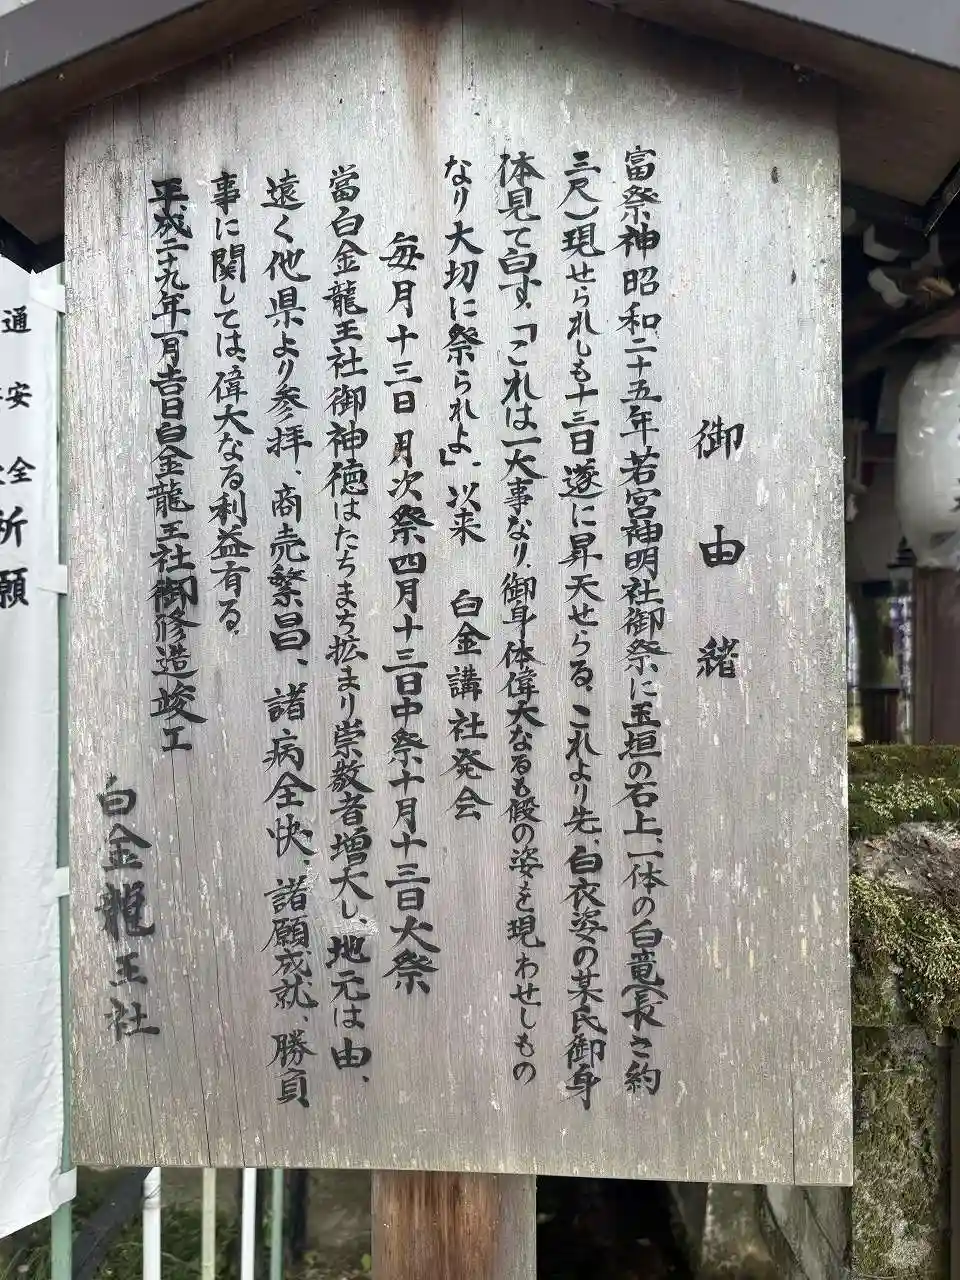 御由緒
富祭神昭和二十五年、若宮神明社御祭に玉垣の石上、一体の白竜(長さ約
三尺)現せられしも十三日遂に昇天せらる、これより先、白衣姿の某氏御身
体見て白す、「これは一大事なり、御身体偉大なるも仮の姿を現わせしもの
なり大切に祭られよ」、以来　白金講社発会
毎月十三日月次祭四月十三日中祭十月十三日大祭
當白金龍王社御神徳はたちまち拡まり崇敬者増大し、地元は由、
遠く他県より参拝、商売繁昌、諸病全快、諸願成就、勝負
事に関しては、偉大なる利益有る、
平成二十九年一月吉日白金龍王社御修造竣工
白金龍王社
通安全祈願